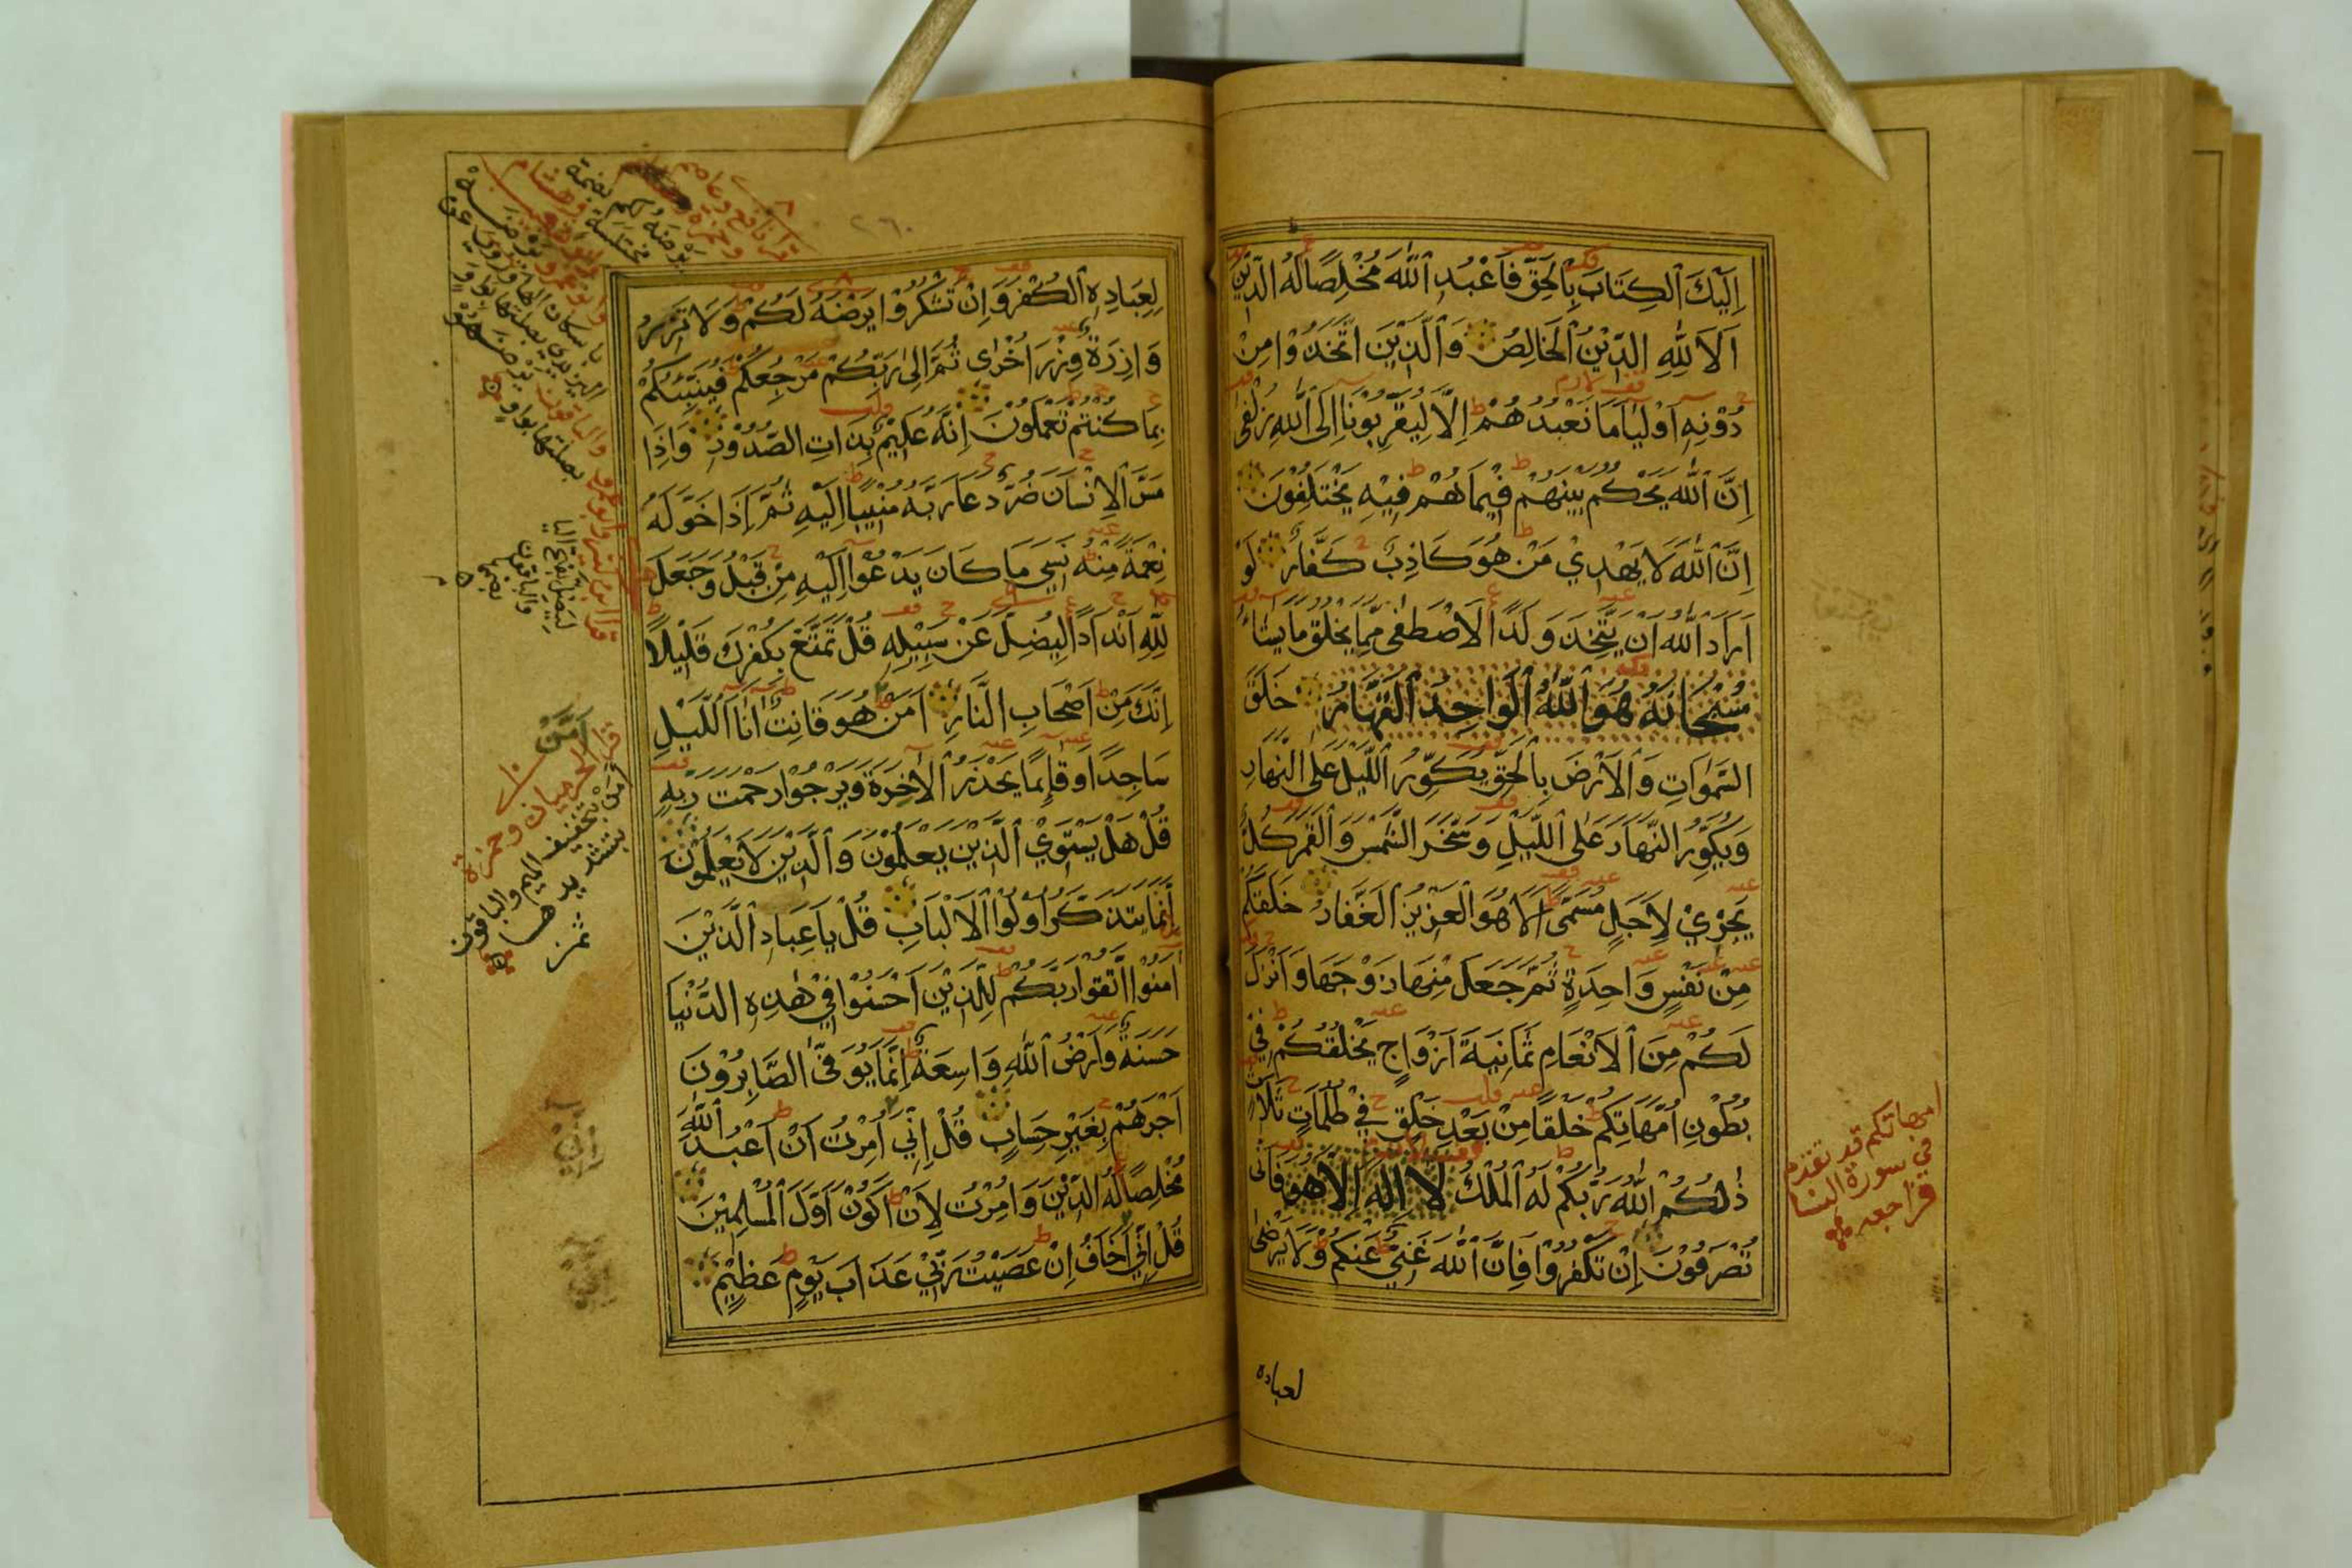 اِلَيْكَ الْكِتَابَ بِالْحَقِّ فَاعْبُدِ اللّٰهَ مُخْلِصًا لَهُ الدِّيْنَ
اَلَا لِلّٰهِ الدِّيْنُ الْخَالِصُ وَالَّذِيْنَ اتَّخَذُوْا مِنْ
دُوْنِهٖ اَوْلِيَآءَ مَا نَعْبُدُهُمْ اِلَّا لِيُقَرِّبُوْنَا اِلَى اللّٰهِ زُلْفٰى
اِنَّ اللّٰهَ يَحْكُمُ بَيْنَهُمْ فِيْمَا هُمْ فِيْهِ يَخْتَلِفُوْنَ
اِنَّ اللّٰهَ لَا يَهْدِيْ مَنْ هُوَ كَاذِبٌ كَفَّارٌ لَوْ
اَرَادَ اللّٰهُ اَنْ يَتَّخِذَ وَلَدًا لَاصْطَفٰى مِمَّا يَخْلُقُ مَا يَشَاءُ
سُبْحَانَهُ هُوَ اللّٰهُ الْوَاحِدُ الْقَهَّارُ خَلَقَ
السَّمٰوَاتِ وَالْاَرْضَ بِالْحَقِّ يُكَوِّرُ اللَّيْلَ عَلَى النَّهَارِ
وَيُكَوِّرُ النَّهَارَ عَلَى اللَّيْلِ وَسَخَّرَ الشَّمْسَ وَالْقَمَرَ كُلٌّ
يَجْرِيْ لِاَجَلٍ مُسَمًّى اَلَا هُوَ الْعَزِيْزُ الْغَفَّارُ خَلَقَكُمْ
مِنْ نَفْسٍ وَاحِدَةٍ ثُمَّ جَعَلَ مِنْهَا زَوْجَهَا وَاَنْزَلَ
لَكُمْ مِنَ الْاَنْعَامِ ثَمَانِيَةَ اَزْوَاجٍ يَخْلُقُكُمْ فِيْ
بُطُوْنِ اُمَّهَاتِكُمْ خَلْقًا مِنْ بَعْدِ خَلْقٍ فِيْ ظُلُمَاتٍ ثَلَاثٍ
ذٰلِكُمُ اللّٰهُ رَبُّكُمْ لَهُ الْمُلْكُ لَا اِلٰهَ اِلَّا هُوَ فَاَنّٰى
تُصْرَفُوْنَ اِنْ تَكْفُرُوْا فَاِنَّ اللّٰهَ غَنِيٌّ عَنْكُمْ وَلَا يَرْضٰى
لعباده
امهاتكم قد تقدم
في سورة النسا
فراجعه
لِعِبَادِهِ الْكُفْرَ وَاِنْ تَشْكُرُوْا يَرْضَهُ لَكُمْ وَلَا تَزِرُ
وَازِرَةٌ وِزْرَ اُخْرٰى ثُمَّ اِلٰى رَبِّكُمْ مَرْجِعُكُمْ فَيُنَبِّئُكُمْ
بِمَا كُنْتُمْ تَعْمَلُوْنَ اِنَّهُ عَلِيْمٌ بِذَاتِ الصُّدُوْرِ وَاِذَا
مَسَّ الْاِنْسَانَ ضُرٌّ دَعَا رَبَّهُ مُنِيْبًا اِلَيْهِ ثُمَّ اِذَا خَوَّلَهُ
نِعْمَةً مِنْهُ نَسِيَ مَا كَانَ يَدْعُوْا اِلَيْهِ مِنْ قَبْلُ وَجَعَلَ
لِلّٰهِ اَنْدَادًا لِيُضِلَّ عَنْ سَبِيْلِهِ قُلْ تَمَتَّعْ بِكُفْرِكَ قَلِيْلًا
اِنَّكَ مِنْ اَصْحَابِ النَّارِ اَمَّنْ هُوَ قَانِتٌ اٰنَاءَ اللَّيْلِ
سَاجِدًا وَقَائِمًا يَحْذَرُ الْاٰخِرَةَ وَيَرْجُوْا رَحْمَتَ رَبِّهِ
قُلْ هَلْ يَسْتَوِيْ الَّذِيْنَ يَعْلَمُوْنَ وَالَّذِيْنَ لَا يَعْلَمُوْنَ
اِنَّمَا يَتَذَكَّرُ اُولُوْا الْاَلْبَابِ قُلْ يَا عِبَادِ الَّذِيْنَ
اٰمَنُوْا اتَّقُوْا رَبَّكُمْ لِلَّذِيْنَ اَحْسَنُوْا فِيْ هٰذِهِ الدُّنْيَا
حَسَنَةٌ وَاَرْضُ اللّٰهِ وَاسِعَةٌ اِنَّمَا يُوَفَّى الصَّابِرُوْنَ
اَجْرَهُمْ بِغَيْرِ حِسَابٍ قُلْ اِنِّيْ اُمِرْتُ اَنْ اَعْبُدَ اللّٰهَ
مُخْلِصًا لَهُ الدِّيْنَ وَاُمِرْتُ لِاَنْ اَكُوْنَ اَوَّلَ الْمُسْلِمِيْنَ
قُلْ اِنِّيْ اَخَافُ اِنْ عَصَيْتُ رَبِّيْ عَذَابَ يَوْمٍ عَظِيْمٍ
٢٦٠
قرا نافع وعاصم
وحمزة
ليضل بفتح اليا
والباقون
بضمها
اَمَّنْ
قرا الحرميان وحمزة
امن بتخفيف الميم والباقون
بتشديدها